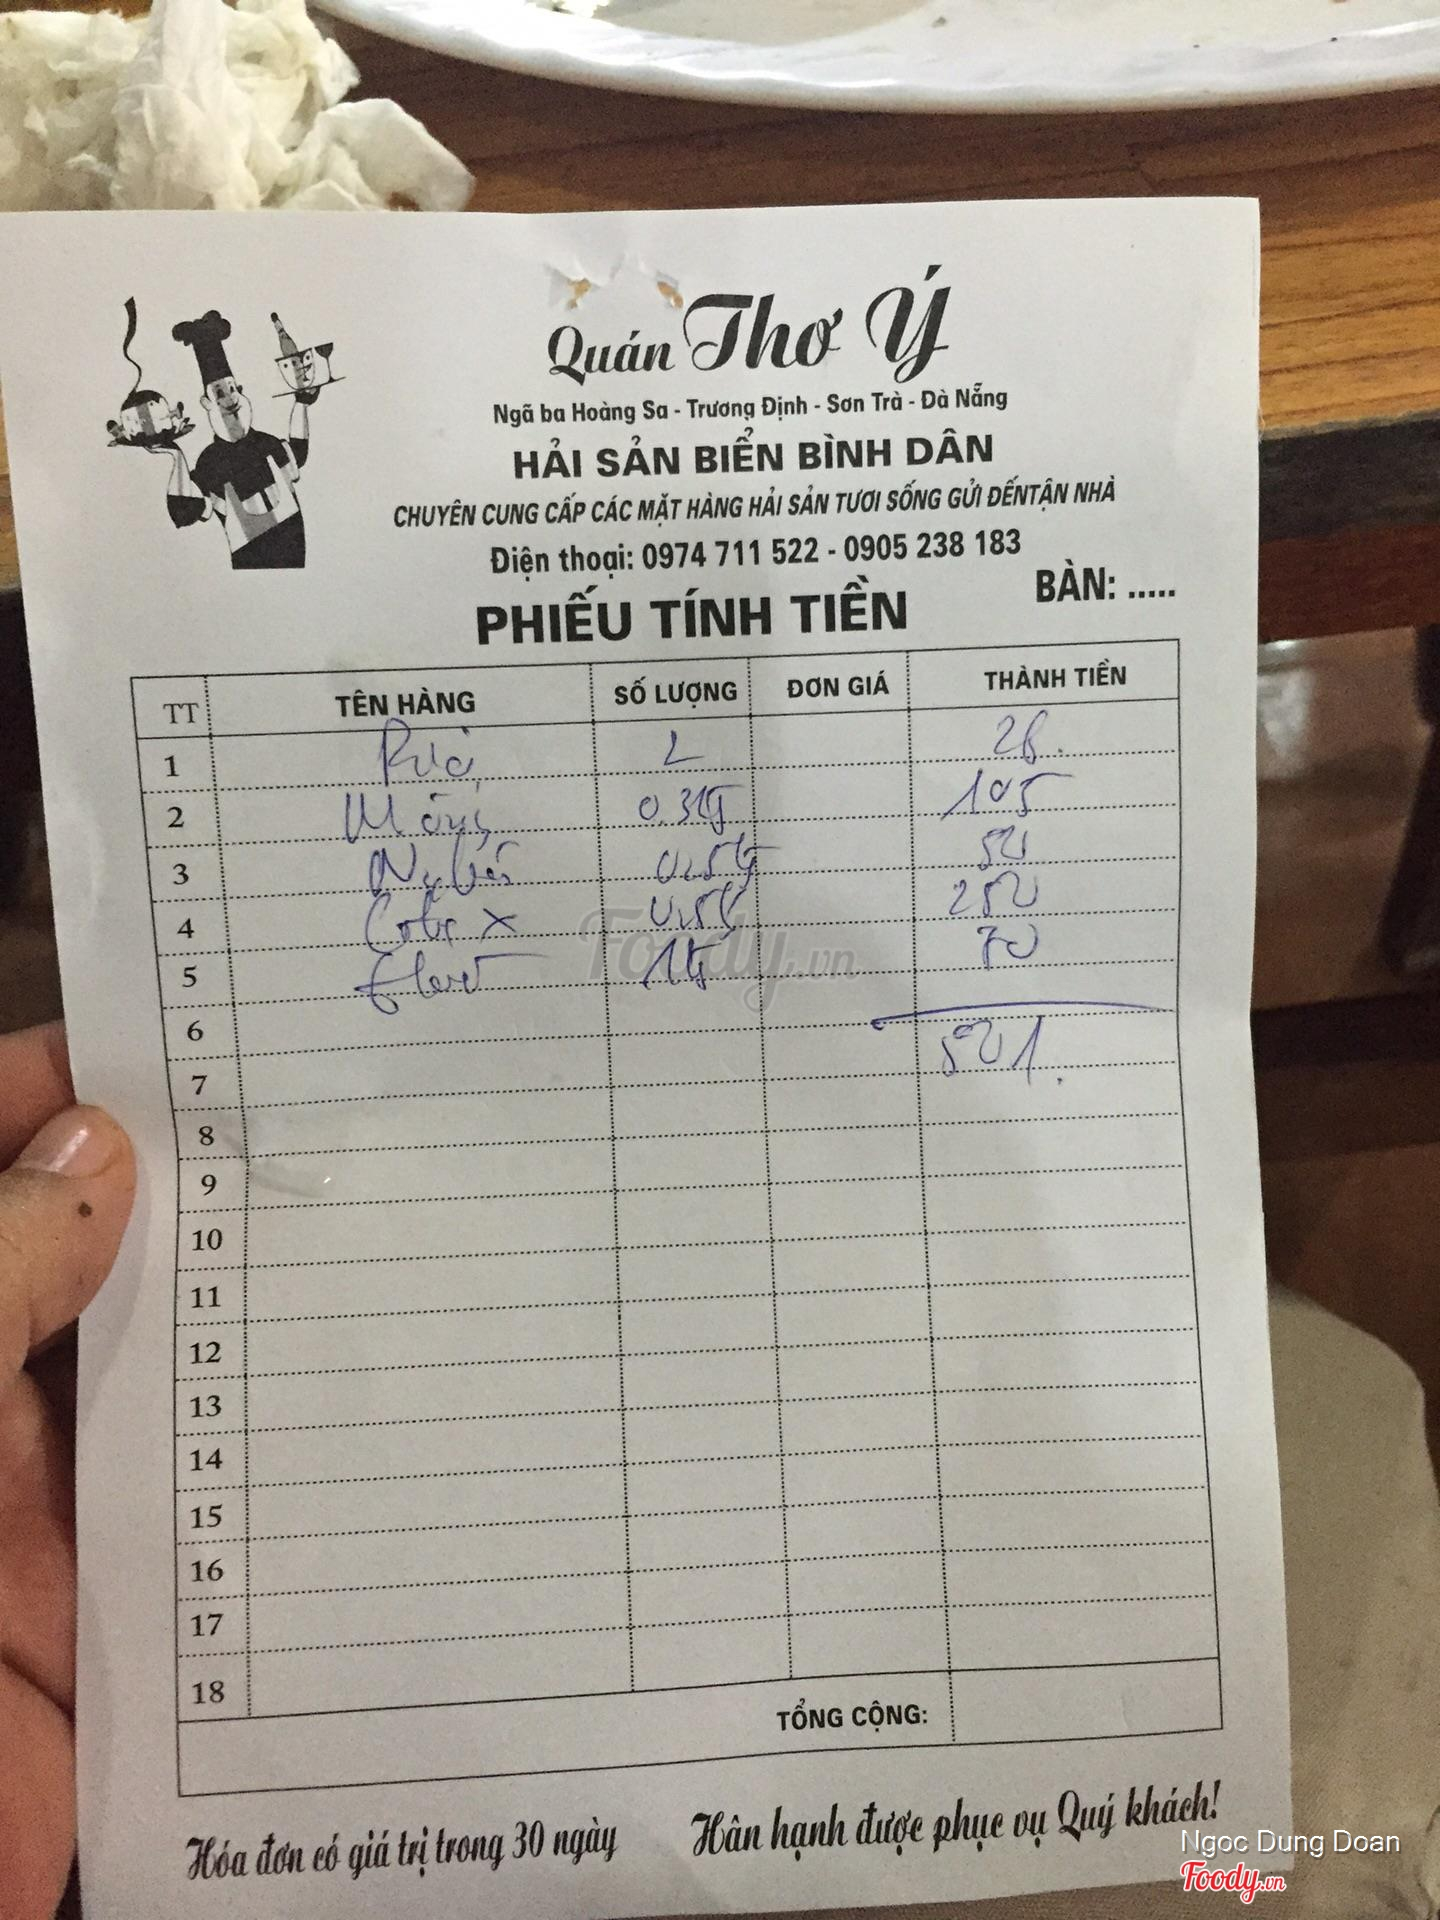 Quán Thơ Ý
Ngã ba Hoàng Sa - Trương Định - Sơn Trà - Đà Nẵng
HẢI SẢN BIỂN BÌNH DÂN
CHUYÊN CUNG CẤP CÁC MẶT HÀNG HẢI SẢN TƯƠI SỐNG GỬI ĐẾNTẬN NHÀ
Điện thoại: 0974 711 522 - 0905 238 183
BÀN: .....
PHIẾU TÍNH TIỀN
TT TÊN HÀNG SỐ LƯỢNG ĐƠN GIÁ THÀNH TIỀN
1 2
2 105
3 50
4 250
5 70
6
501.
7
8
9
10
11
12
13
14
15
16
17
18
TỔNG CỘNG:
Hóa đơn có giá trị trong 30 ngày Hân hạnh được phục vụ Quý khách!
Foody.vn
Ngoc Dung Doan
Foody.vn